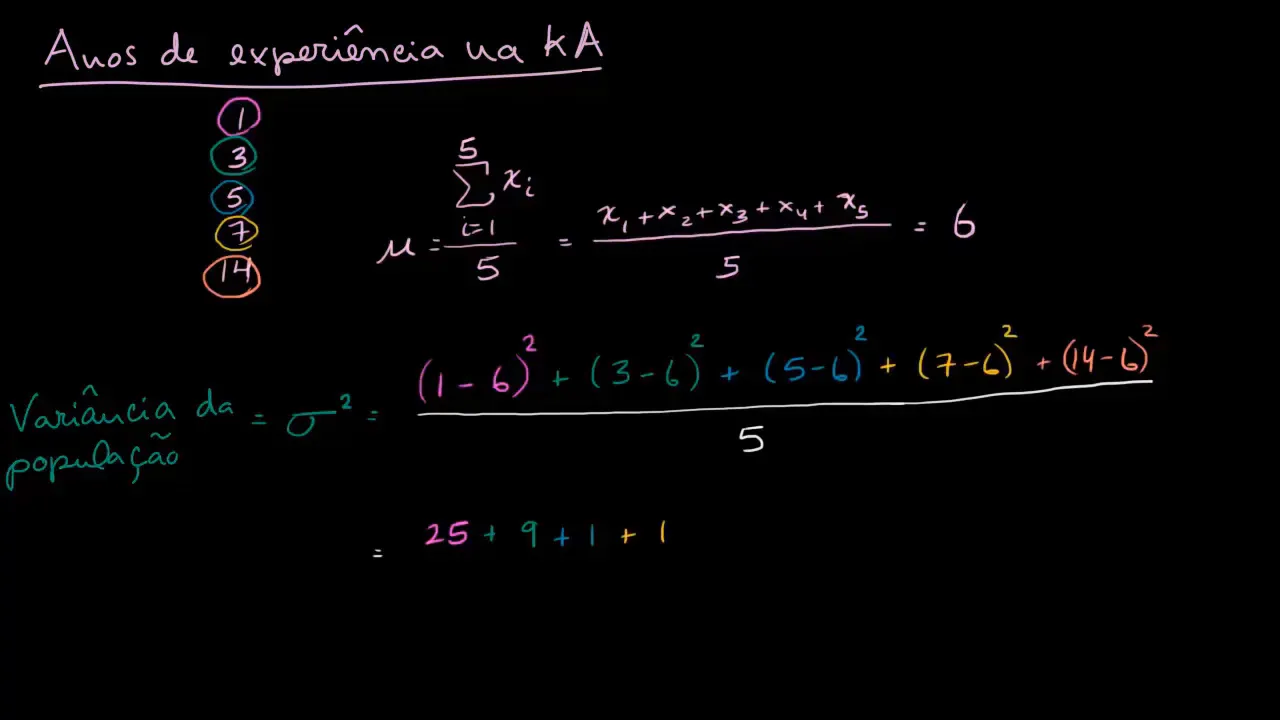 Anos de experiência na KA
1
3
5
7
14
μ = \frac{\sum_{i=1}^{5} x_i}{5} = \frac{x_1 + x_2 + x_3 + x_4 + x_5}{5} = 6
Variância da população = σ² = \frac{(1-6)² + (3-6)² + (5-6)² + (7-6)² + (14-6)²}{5}
= 25 + 9 + 1 + 1